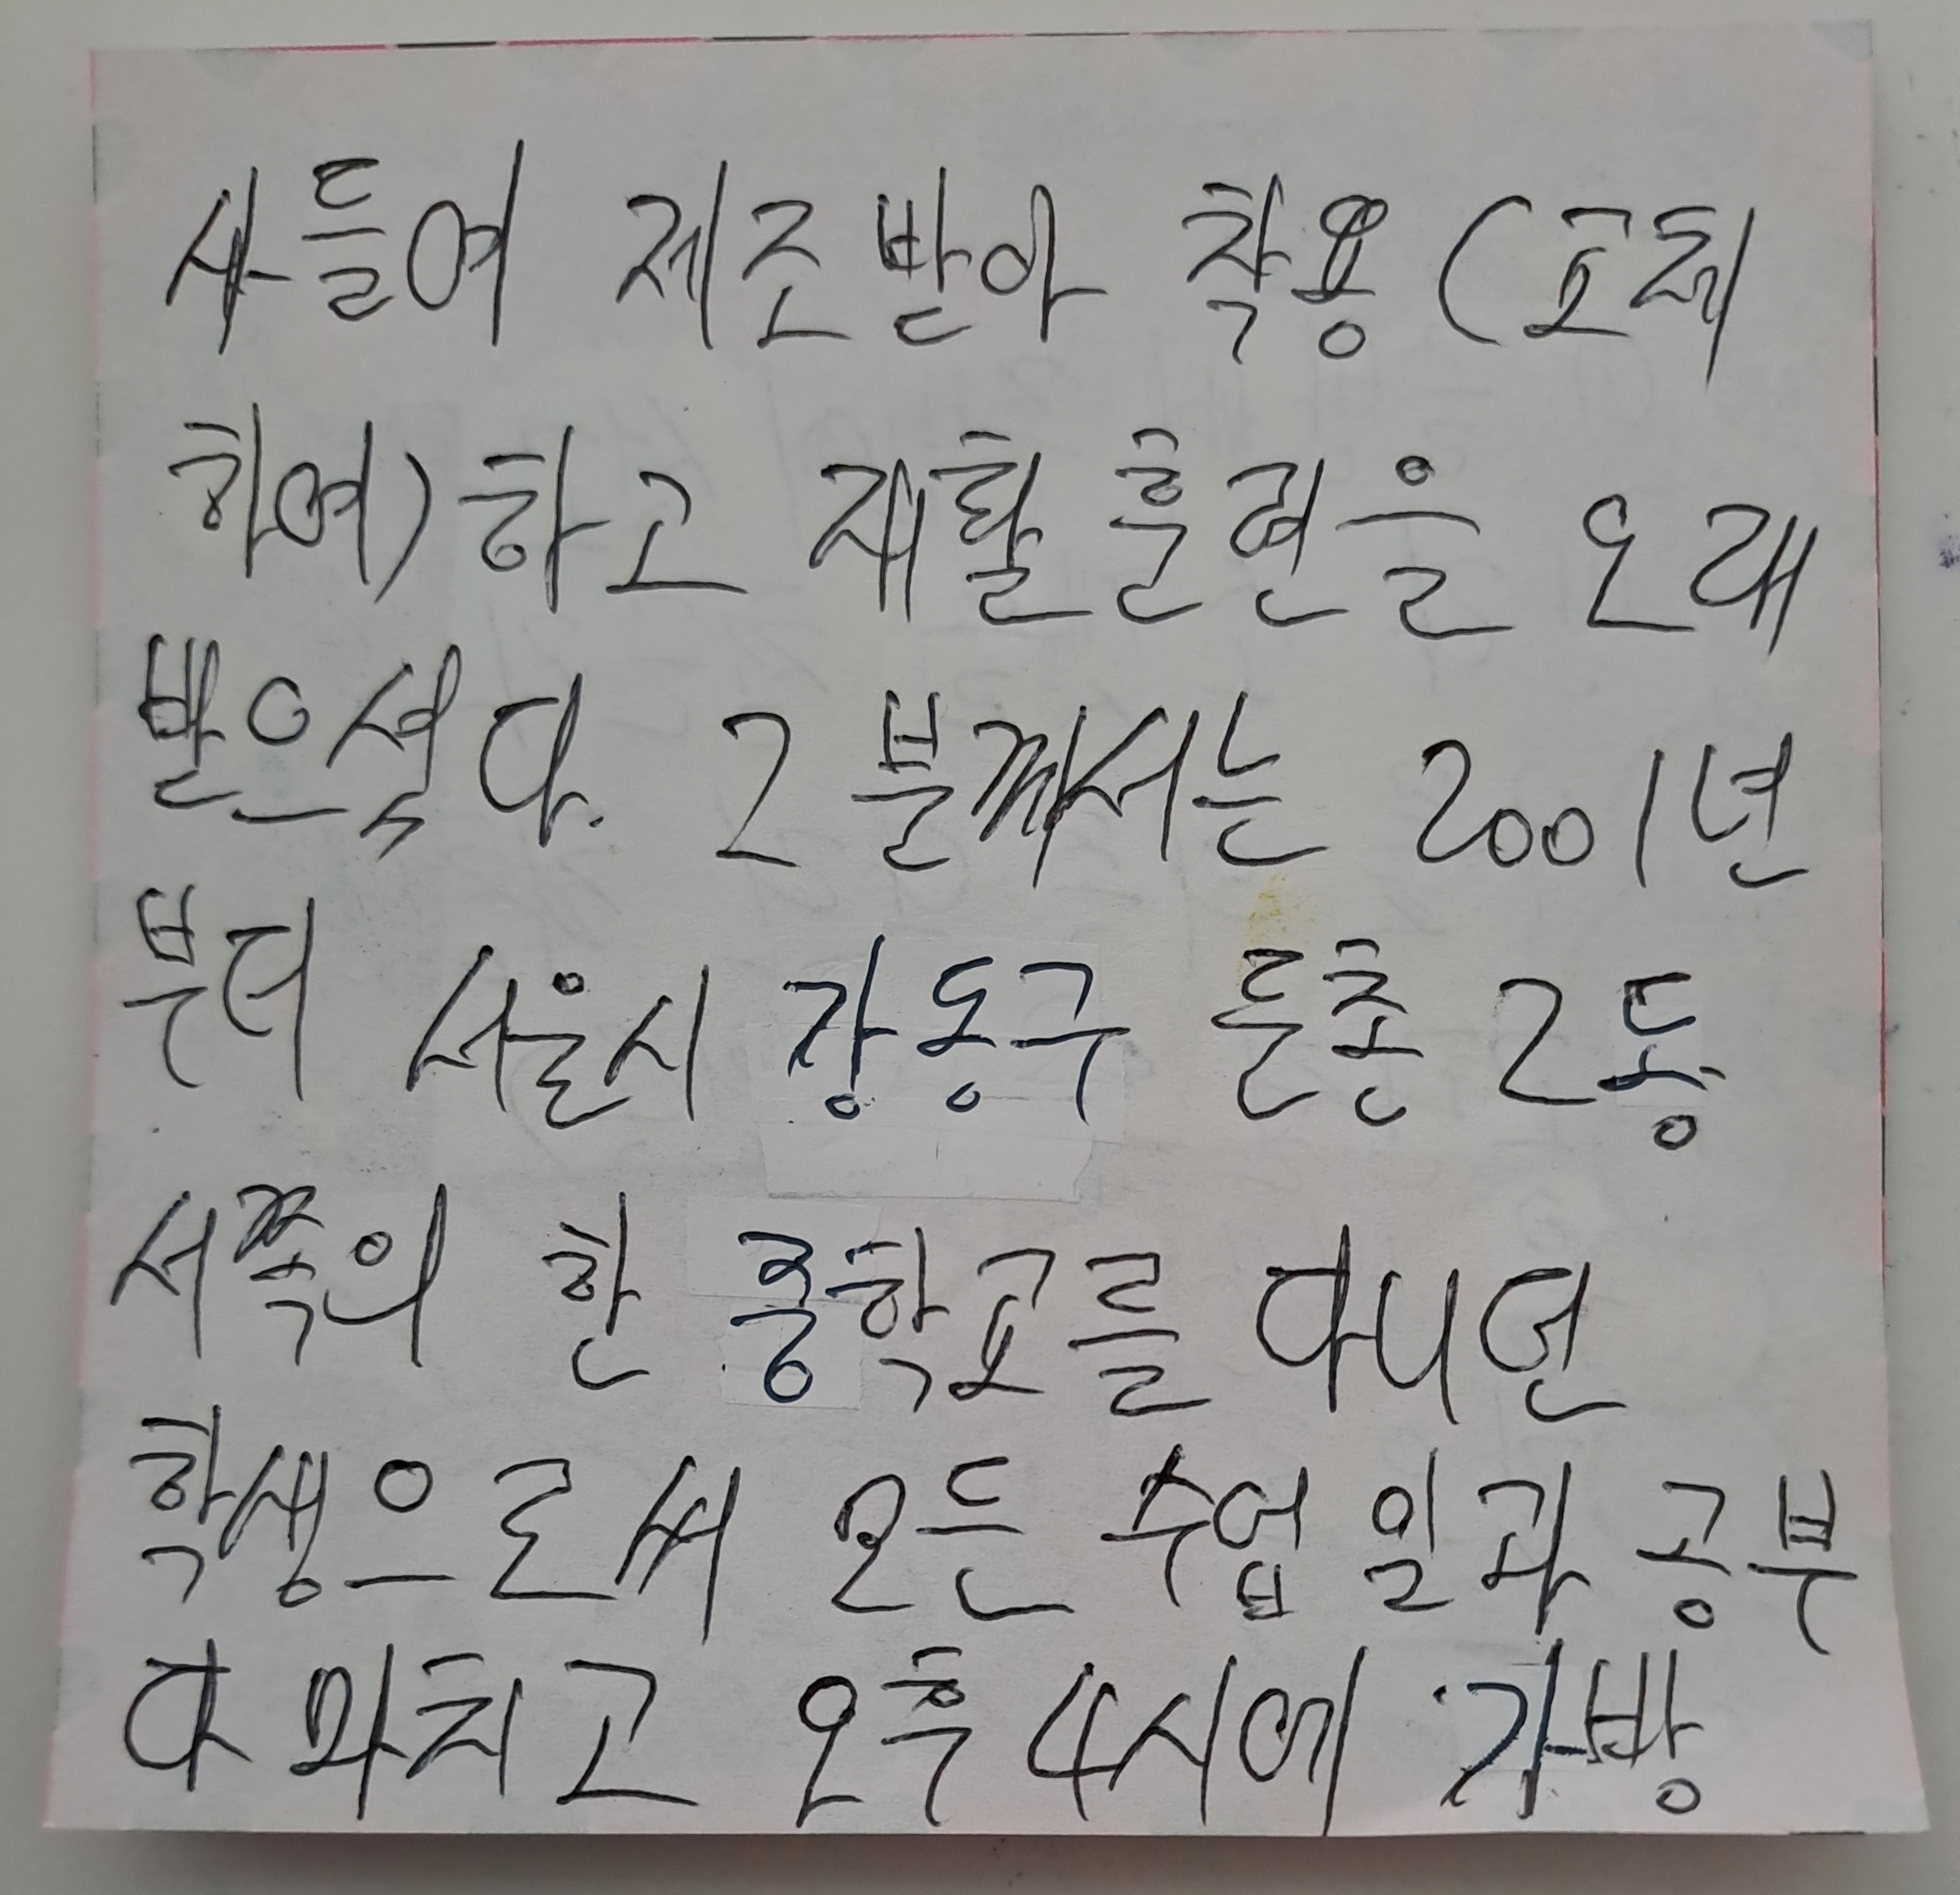 사들여 제조받아 착용(교체
하여)하고 재활훈련을 오래
받으셨다. 2분께서는 2001년
부터 서울시 강동구 둔촌2동
서쪽의 한 중학교를 다니던
학생으로써 모든 수업일과 공부
다 마치고 오후 4시에 가방